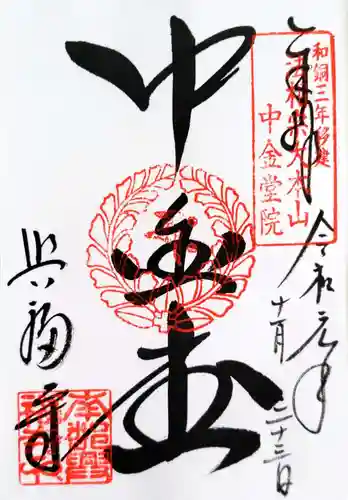 奉拝
和銅三年移建
法相宗大本山
中金堂院
令和元年
十一月二十三日
中金堂
興福寺